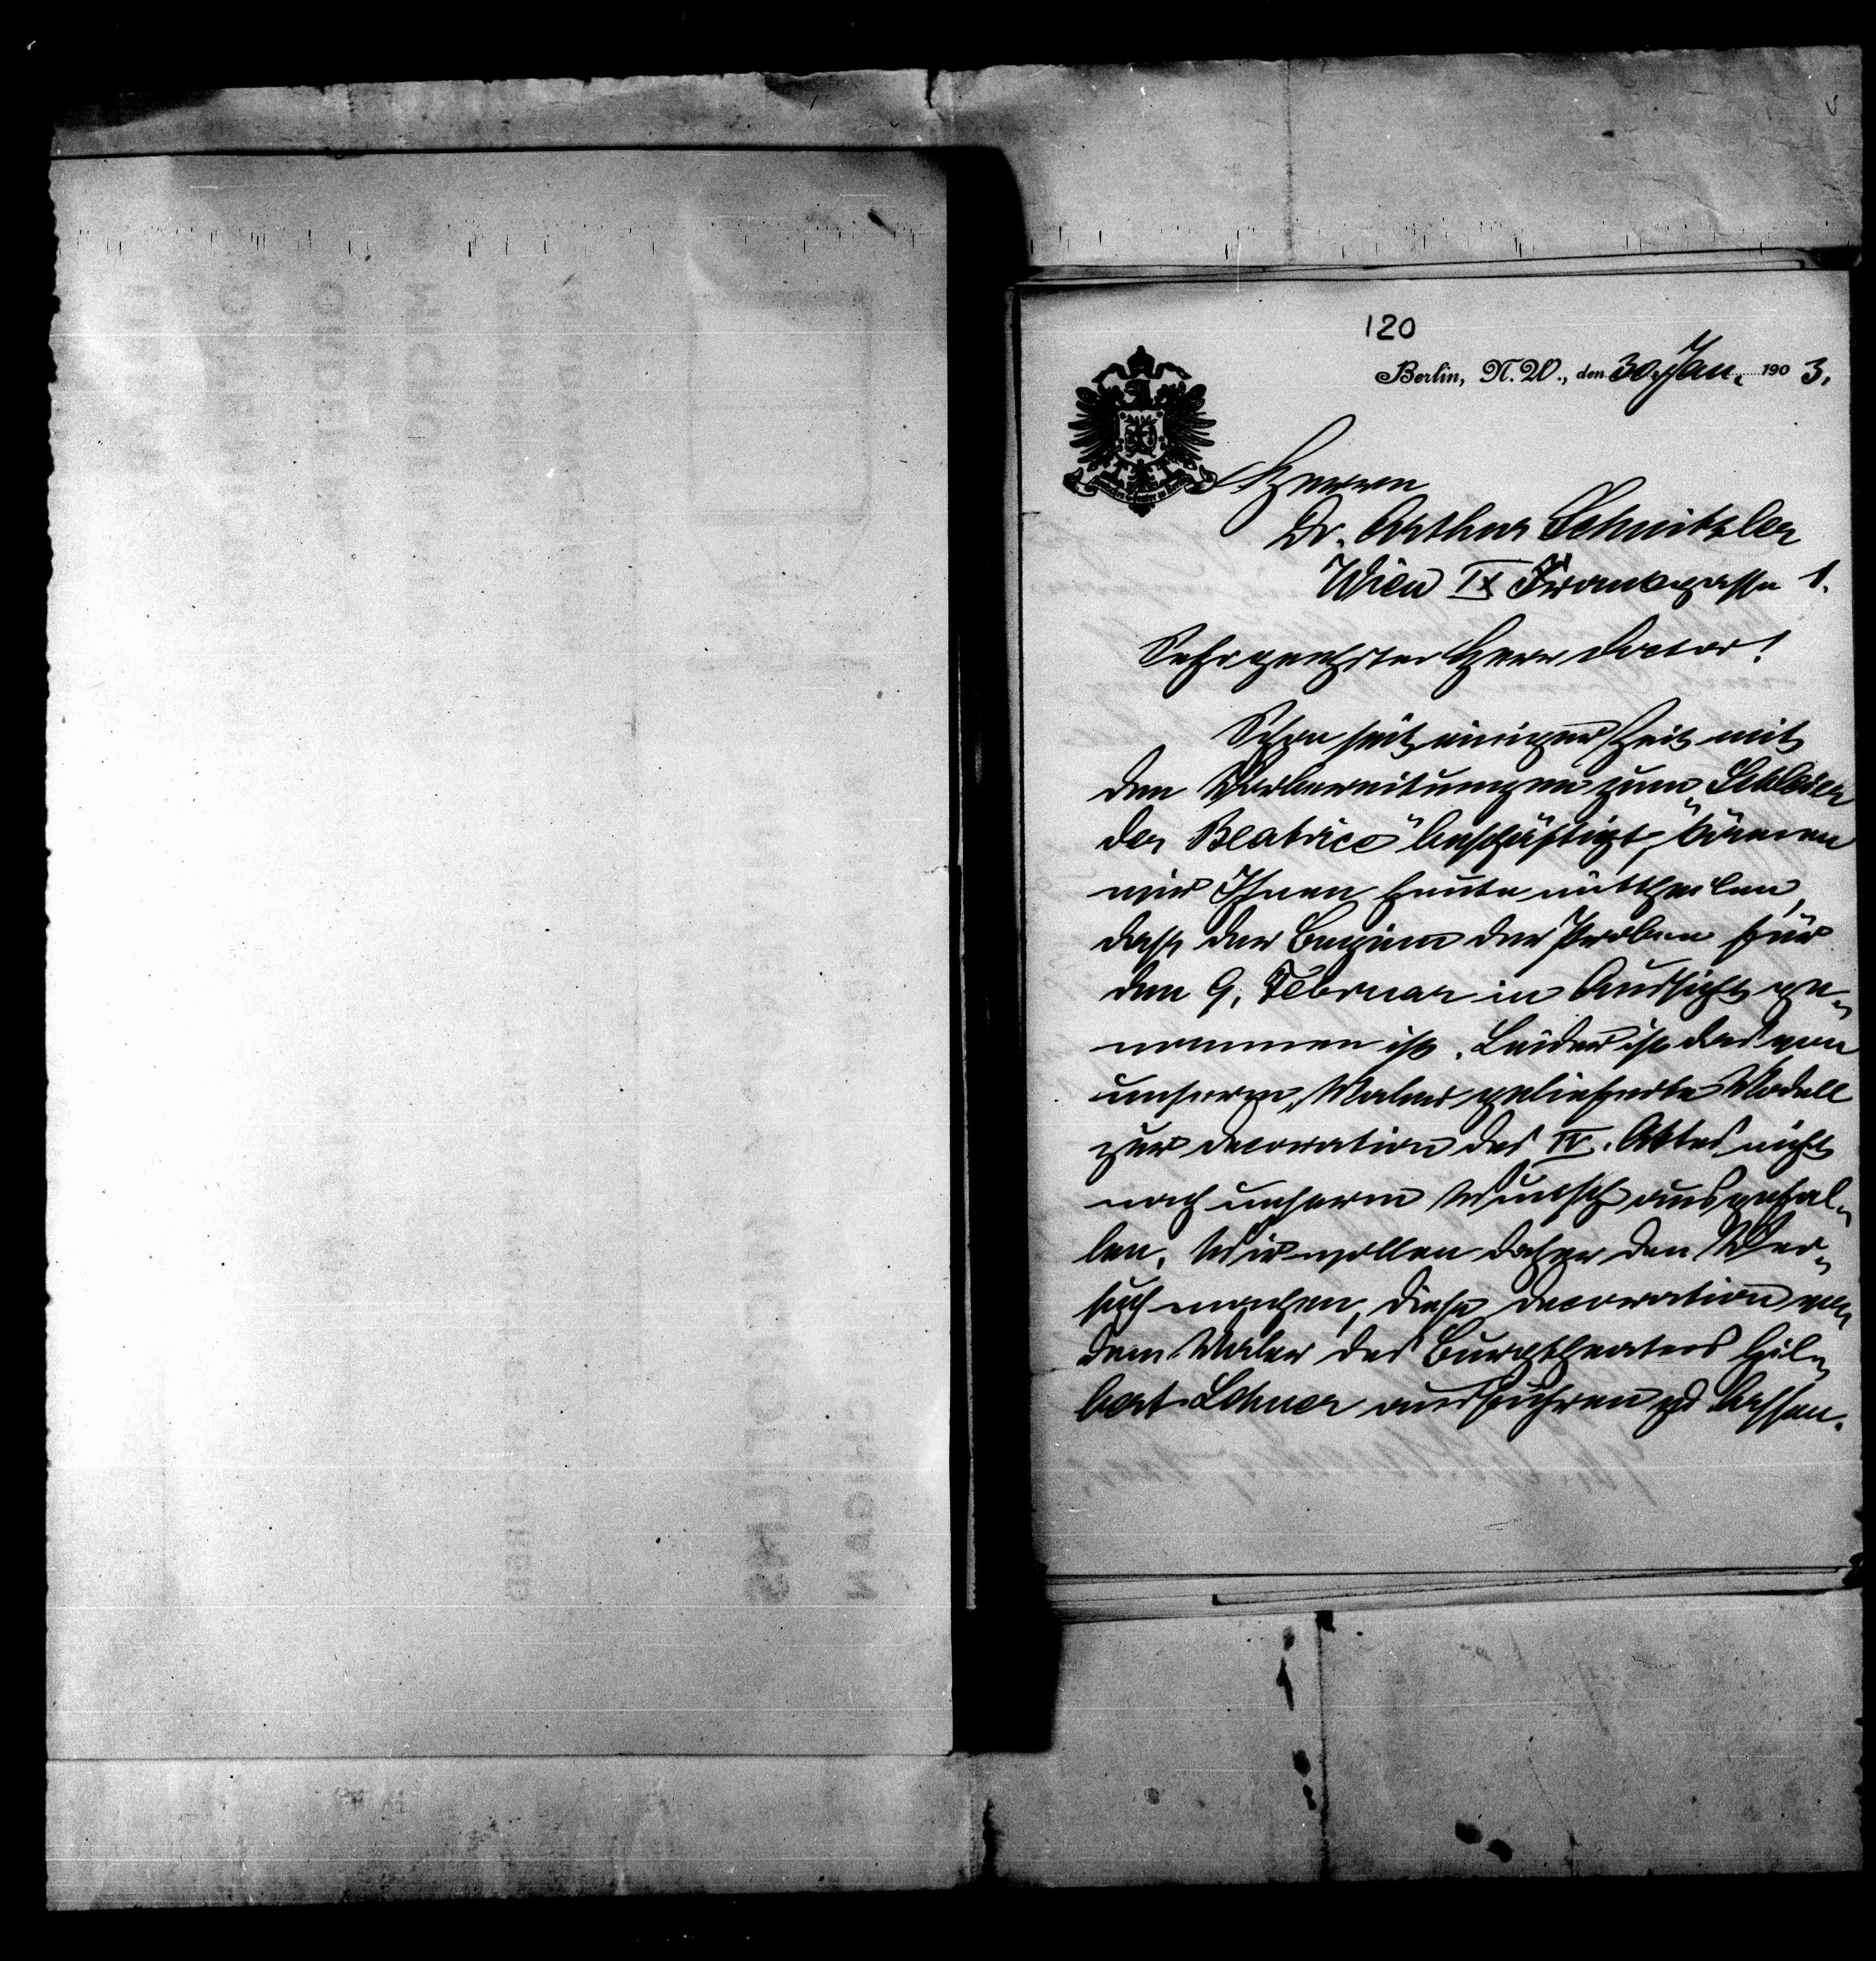 120
Berlin, N.W., den 30. Jan. 1903.
Herrn
Dr. Arthur Schnitzler
Wien IX Frankgasse 1.
Sehr geehrter Herr Doctor!
Schon seit einiger Zeit mit
den Vorbereitungen zum „Schleier
der Beatrice" beschäftigt, können
wir Ihnen heute mittheilen,
dass der Beginn der Proben für
den 9. Februar in Aussicht ge-
nommen ist. Leider ist das von
unserem Maler gelieferte Modell
zur Decoration des IV. Aktes nicht
nach unserem Wunsch ausgefal-
len. Wir wollen daher den Ver-
such machen, diese Decoration von
dem Maler des Burgtheaters Gil-
bert Lehner ausführen zu lassen.